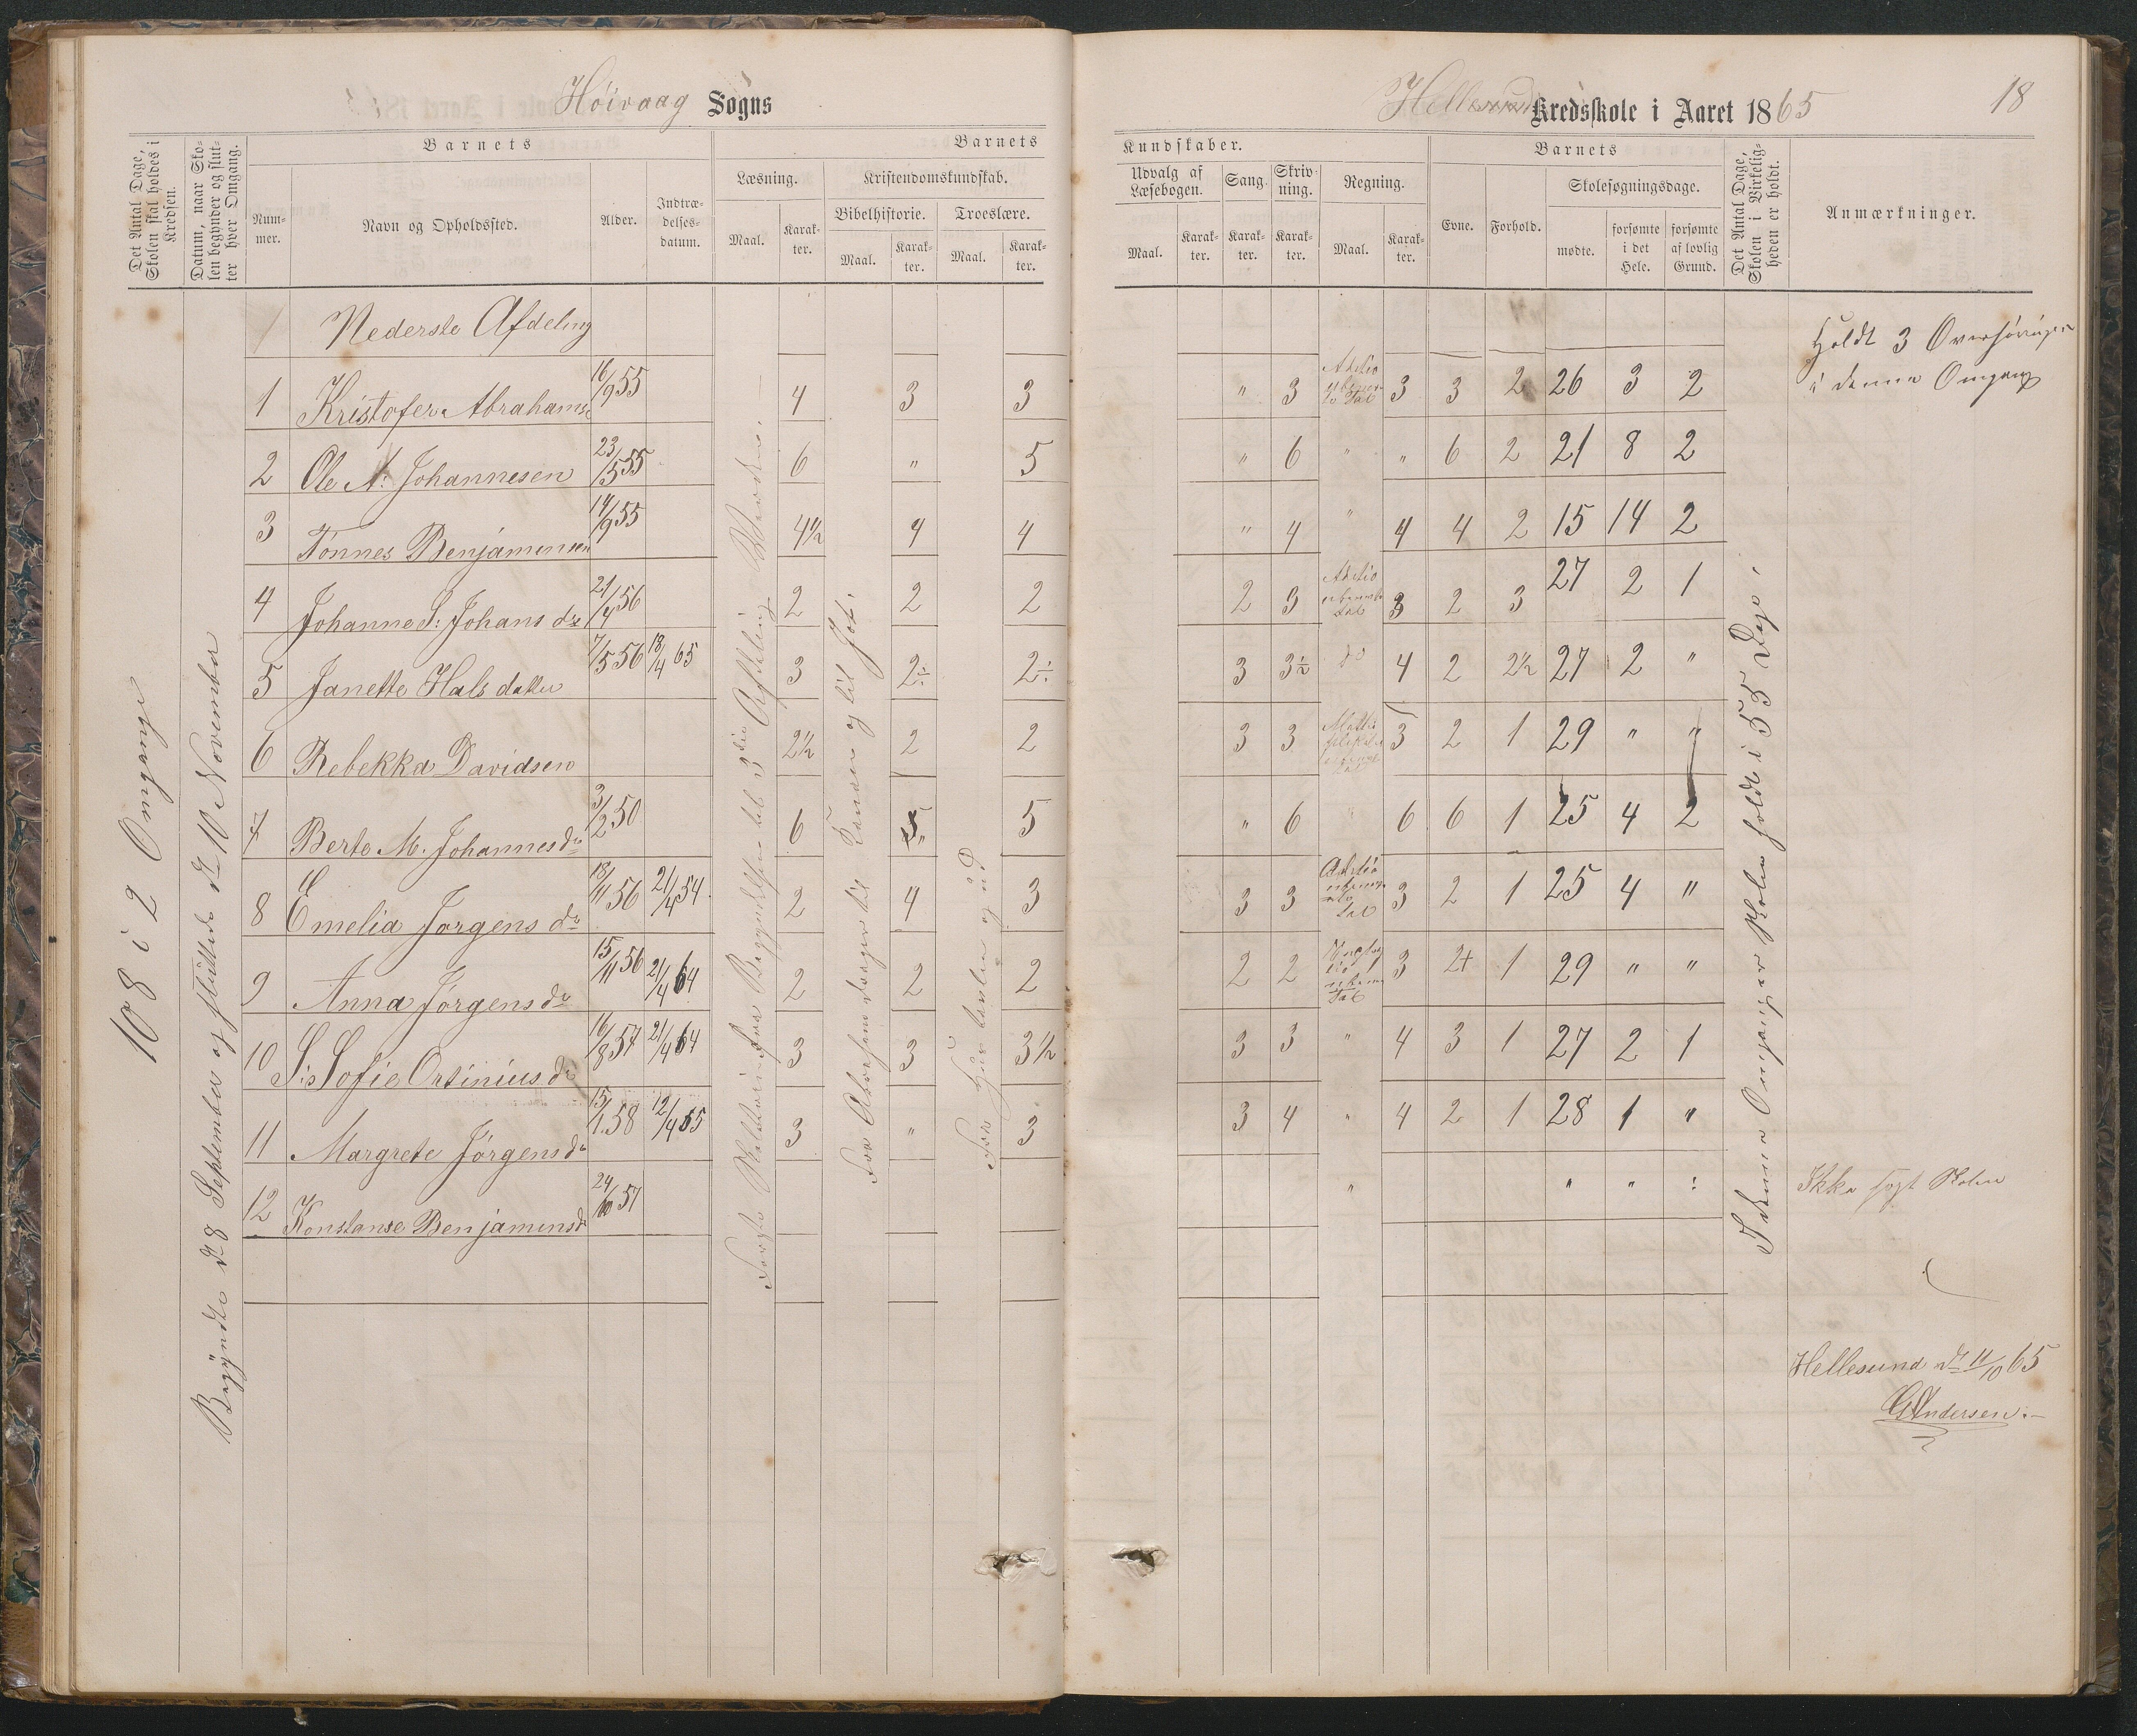 Höivaag Sogns
Hellesund Kredsskole i Aaret 1865
18
Det Antal Dage, Skolen skal holdes i Kredsen.
Datum, naar Skolen begynder og slutter hver Omgang.
Barnets
Nummer.
Navn og Opholdssted.
Alder.
Indtrædelsesdatum.
Barnets
Læsning.
Maal.
Karakter.
Kristendomskundskab.
Bibelhistorie.
Maal.
Karakter.
Troeslære.
Maal.
Karakter.
Kundskaber.
Udvalg af Læsebogen.
Maal.
Karakter.
Sang.
Karakter.
Skrivning.
Karakter.
Regning.
Maal.
Karakter.
Barnets
Evne.
Forhold.
Skolesøgningsdage.
mødte.
forsømte i det Hele.
forsømte af lovlig Grund.
Det Antal Dage, Skolen i Virkeligheden er holdt.
Anmærkninger.
108 i 2 Omgange
Begyndte d 8 September og sluttede d 10 November
Nederste Afdeling
Holdt 3 Overhøringer
i denne Omgang
1 Kristofer Abrahams 16/9 55 4 3 3 " 3 3 3 2 26 3 2
2 Ole A: Johannesen 23/5 55 6 " 5 " 6 " " 6 2 21 8 2
3 Tönnes Benjaminsen 14/9 55 4½ 4 4 " 4 " 4 4 2 15 14 2
4 Johanne S: Johans dr 21/4 56 2 2 2 2 3 3 2 3 27 2 1
5 Janette Hals datter 7/5 56 18/4 65 3 2÷ 2÷ 3 3½ do 4 2 2½ 27 2 "
6 Rebekka Davidsen 2½ 2 2 3 3 3 2 1 29 " "
7 Berte M. Johannesdr 3/2 50 6 " 5 " 6 " 6 6 1 25 4 2
8 Emelia Jörgens dr 18/11 56 21/4 54 2 4 3 3 3 3 2 1 25 4 "
9 Anna Jörgens dr 15/11 56 21/4 64 2 2 2 2 2 3 2+ 1 29 " "
10 S: Sofie Ortinius dr 16/8 57 21/4 64 3 3 3½ 3 3 " 4 3 1 27 2 1
11 Margrete Jörgens dr 15/1 58 12/4 65 3 " 3 3 4 " 4 2 1 28 1 "
12 Konstanse Benjaminsdr 24/10 57 " " " :
Ikke søgt Skolen
I denne Omgang er Skolen holdt i 55 Dage.
Hellesund d 11/10 65
G Andersen.